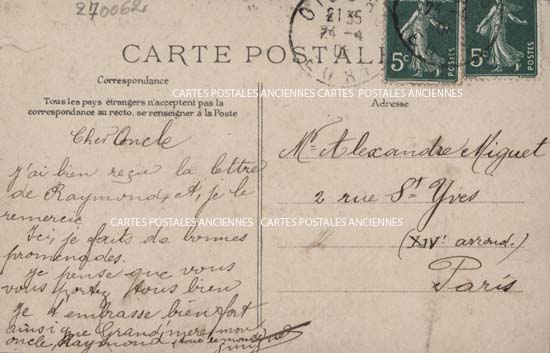 270062
21 35
24-4
5c
POSTES
5c
POSTES
CARTE POSTALE
Correspondance
Tous les pays étrangers n'acceptent pas la
correspondance au recto, se renseigner à la Poste
Adresse
CARTES POSTALES ANCIENNES CARTES POSTALES ANCIENNES
Cher Oncle
j'ai bien reçu la lettre
de Raymond, et je le
remercie
Ici, je fais de bonnes
promenades.
je pense que vous
vous portez tous bien
Je t'embrasse bien fort
ainsi que Grand'mere, mon
oncle, Raymond, tout le monde
CARTES POSTALES ANCIENNES CARTES POSTALES ANCIENNES
Mr Alexandre Miguet
2 rue St Yves
(XIVe arrond.)
Paris